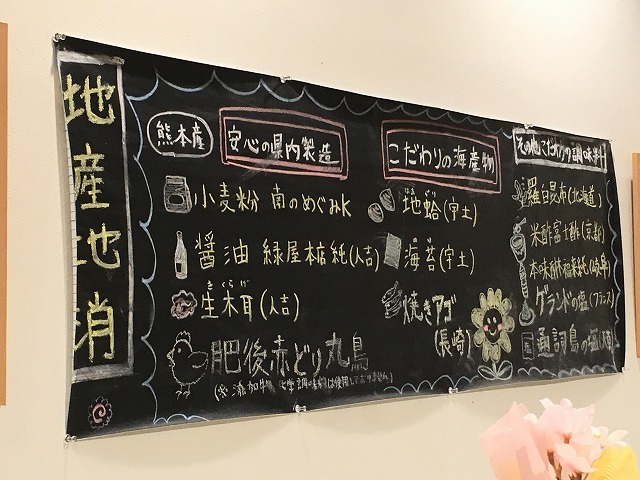 地産地消
熊本産
安心の県内製造
小麦粉 南のめぐみK
醤油 緑屋本店 純(人吉)
きくらげ
生木耳(人吉)
肥後赤どり丸鳥
(※添加物 化学調味料は使用しておりません)
こだわりの海産物
地蛤(宇土)
海苔(宇土)
焼きアゴ
(長崎)
その他こだわり調味料
羅臼昆布(北海道)
米酢富士酢(京都)
本味醂福来純(岐阜)
ゲランドの塩(フランス)
通詞島の塩